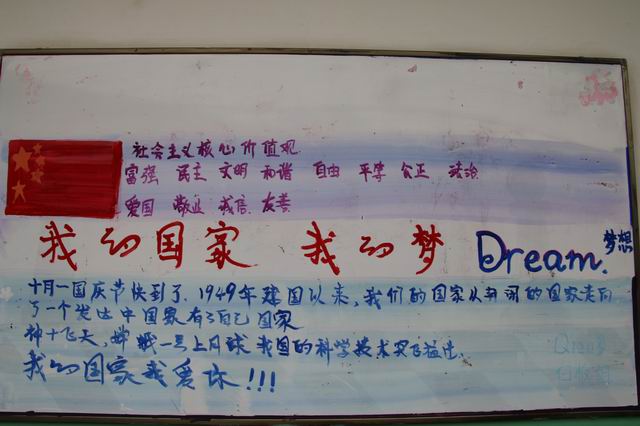 社会主义核心价值观
富强 民主 文明 和谐 自由 平等 公正 法治
爱国 敬业 诚信 友善
我的国家 我的梦 Dream. 梦想
十月一国庆节快到了,1949年建国以来,我们的国家从封闭的国家走向
了一个发达中国家有了自己国家
神十飞天,嫦娥一号上月球 我国的科学技术突飞猛进.
我的国家我爱你!!!